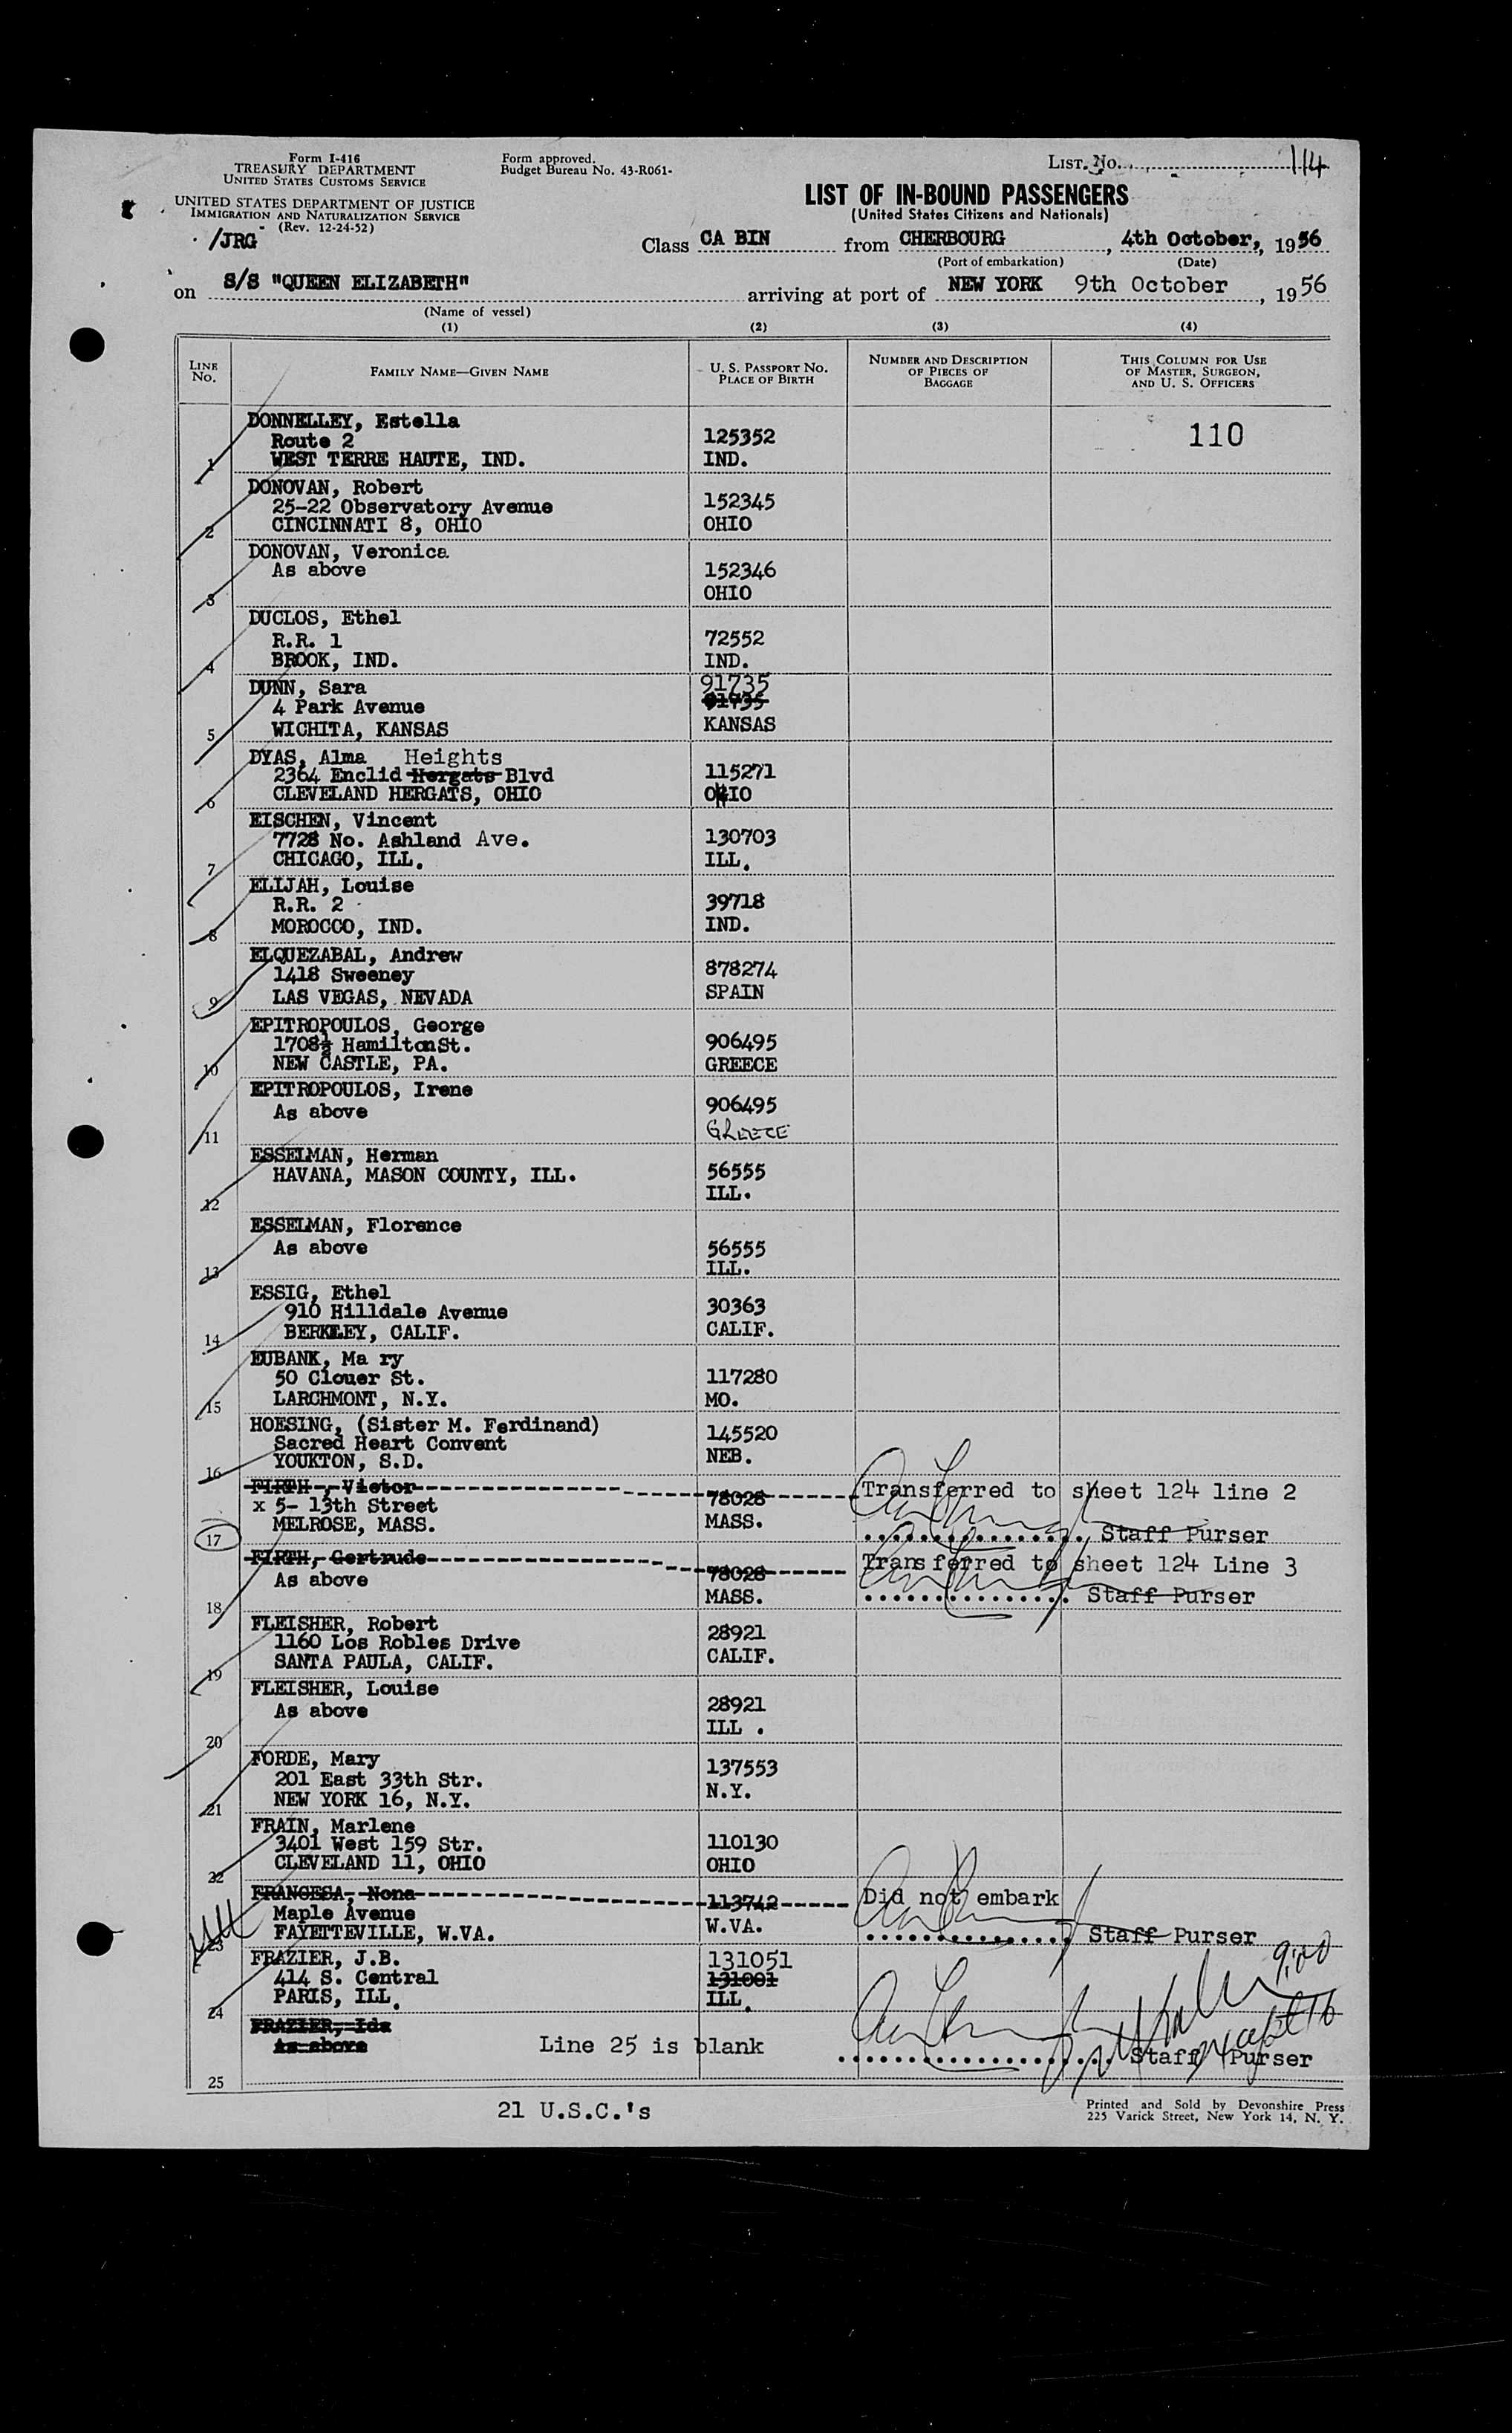 Form I-416
TREASURY DEPARTMENT
UNITED STATES CUSTOMS SERVICE
UNITED STATES DEPARTMENT OF JUSTICE
IMMIGRATION AND NATURALIZATION SERVICE
(Rev. 12-24-52)
/JRG
Form approved.
Budget Bureau No. 43-R061-
LIST NO. 114
LIST OF IN-BOUND PASSENGERS
(United States Citizens and Nationals)
Class CA BIN from CHERBOURG, 4th October, 1956
(Port of embarkation) (Date)
on S/S "QUEEN ELIZABETH" arriving at port of NEW YORK 9th October, 1956
(Name of vessel)
(1) (2) (3) (4)
LINE No. FAMILY NAME—GIVEN NAME U. S. PASSPORT NO. PLACE OF BIRTH NUMBER AND DESCRIPTION OF PIECES OF BAGGAGE THIS COLUMN FOR USE OF MASTER, SURGEON, AND U. S. OFFICERS
DONNELLEY, Estella
Route 2 125352 110
1 WEST TERRE HAUTE, IND. IND.
DONOVAN, Robert
25-22 Observatory Avenue 152345
2 CINCINNATI 8, OHIO OHIO
DONOVAN, Veronica
As above 152346
3 OHIO
DUCLOS, Ethel
R.R. 1 72552
4 BROOK, IND. IND.
DUNN, Sara 91735
4 Park Avenue 91735
5 WICHITA, KANSAS KANSAS
DYAS, Alma Heights
2364 Enclid Hergats Blvd 115271
6 CLEVELAND HERGATS, OHIO OHIO
EISCHEN, Vincent
7728 No. Ashland Ave. 130703
7 CHICAGO, ILL. ILL.
ELIJAH, Louise
R.R. 2 39718
8 MOROCCO, IND. IND.
ELQUEZABAL, Andrew
1418 Sweeney 878274
9 LAS VEGAS, NEVADA SPAIN
EPITROPOULOS, George
1708½ HamiltonSt. 906495
10 NEW CASTLE, PA. GREECE
EPITROPOULOS, Irene
As above 906495
11 GREECE
ESSELMAN, Herman
HAVANA, MASON COUNTY, ILL. 56555
12 ILL.
ESSELMAN, Florence
As above 56555
13 ILL.
ESSIG, Ethel
910 Hilldale Avenue 30363
14 BERKLEY, CALIF. CALIF.
EUBANK, Ma ry
50 Clouer St. 117280
15 LARCHMONT, N.Y. MO.
HOESING, (Sister M. Ferdinand)
Sacred Heart Convent 145520
16 YOUKTON, S.D. NEB.
FIRTH , Victor 78028 Transferred to sheet 124 line 2
x 5- 13th Street
17 MELROSE, MASS. MASS. Staff Purser
FIRTH, Gertrude 78028 Transferred to sheet 124 Line 3
As above
18 MASS. Staff Purser
FLEISHER, Robert
1160 Los Robles Drive 28921
19 SANTA PAULA, CALIF. CALIF.
FLEISHER, Louise
As above 28921
20 ILL .
FORDE, Mary
201 East 33th Str. 137553
21 NEW YORK 16, N.Y. N.Y.
FRAIN, Marlene
3401 West 159 Str. 110130
22 CLEVELAND 11, OHIO OHIO
FRANCESA, Nona 113742 Did not embark
Maple Avenue
23 FAYETTEVILLE, W.VA. W.VA. Staff Purser
FRAZIER, J.B. 131051
414 S. Central 131001
24 PARIS, ILL. ILL.
FRAZIER, Ida
As above Line 25 is blank Staff Purser
25
21 U.S.C.'s
Printed and Sold by Devonshire Press
225 Varick Street, New York 14, N. Y.